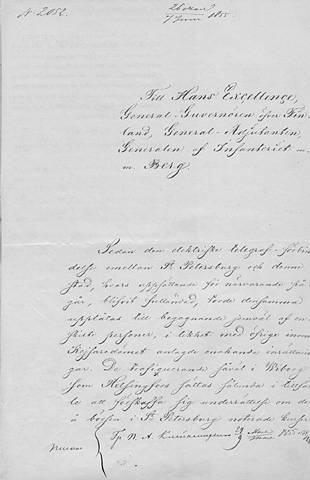 N 2052.
26 maj
7 Juni 1855.
Till Hans Excellence,
General-Guvernören öfver Fin-
land, General-Adjutanten,
Generalen af Infanteriet m.
m. Berg.
Sedan den elektriska telegraf-förbin
delse emellan St Petersburg och denna
stad, hvars uppförande för närvarande på-
går, blifvit fulländad, torde densamma
upplåtas till begagnande jemväl af en-
skilte personer, i likhet med öfrige inom
Kejsaredömet anlagde enahanda inrättnin
gar. De trafiquerande såväl i Wiborg
som Helsingfors sättas sålunda i tillfäl-
le att förskaffa sig underrättelse om de
å börsen i St Petersburg noterade kurser
N. A.
1855